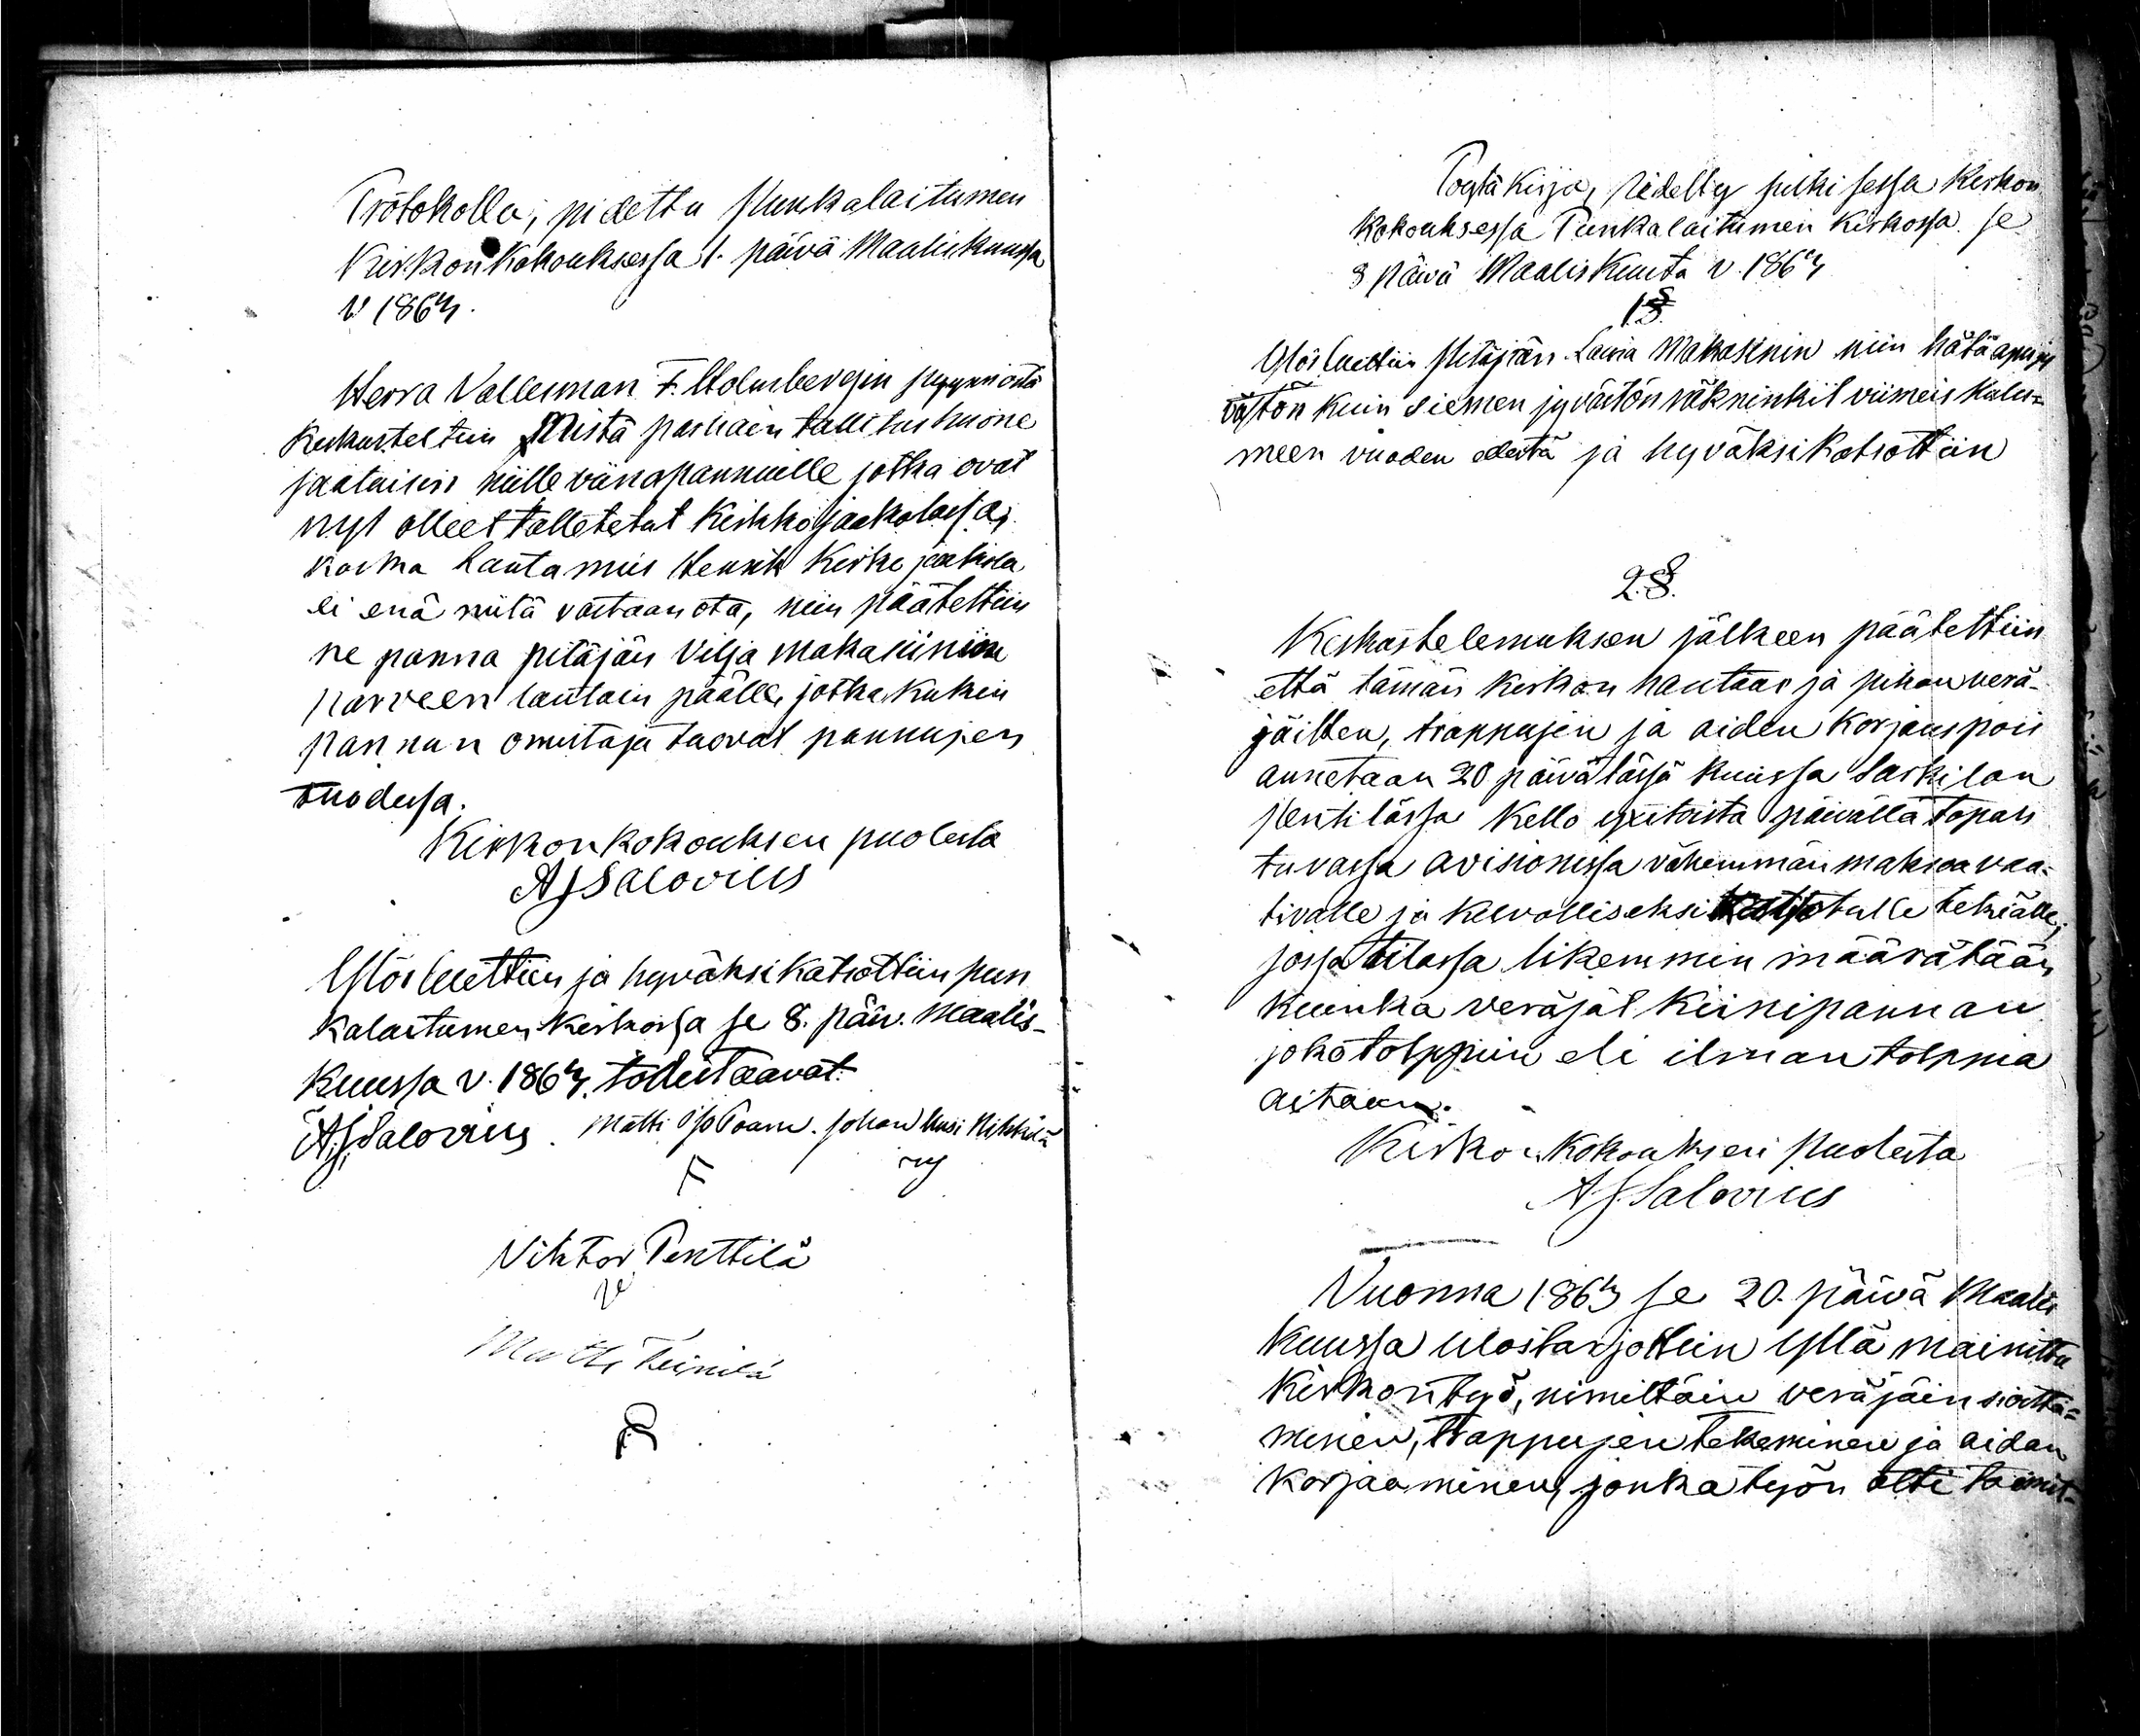 Protokolla, pidettu Punkalaitumen
Kirkon Kokouksessa 1. päivä Maaliskuussa
v 1863.
Herra Vallesman F. Holmbergin pyynnöstä
Keskusteltiin Mistä parhain talli tushuone
saataisiin niille viinapannuille jotka ovat
nyt olleet talletetut Kirkkojaakolassa,
koska Lautamies Henrik Kirkkojaakola
ei enä niitä vastaan ota, niin päätettiin
ne panna pitäjän Vilja makasiinin
parveen lautain päälle, jotka Kukin
pannun omistaja tuovat pannujen
tuodessa.
Kirkonkokouksen puolesta
AJSalovius
Ylösluettiin ja hyväksi katsottiin pun
kalaitumen Kirkossa se 8. päiv. Maalis-
Kuussa v. 1863. todistaavat:
AJSalovius. Matti Iso Johan Uusi Nikkilä
Vihtor Penttilä
Matti
Poytä Kirja, pidetty julki sessa Kirkon
Kokouksessa Punkalaitumen Kirkossa se
8 päivä MaalisKuuta v. 1863
1 §.
Ylösluettiin Pitäjän Laina Makasinin niin hätäapujy
västön kuin siemen jyvästön räkninkit viimeis kulu=
neen vuoden edestä ja hyväksikatsottiin
2 §.
Keskustelemuksen jälkeen päätettiin
että tämän kirkon hautaus ja pihan verä-
jäitten, trappujen ja aiden Korjaus pois
annetaan 20 päivä tässä kuussa Sarkilan
Penttilässä Kello yxitoista päivällä tapah
tuvassa avisionissa vähemmän maksoa vaa-
tivalle ja kelvolliseksi katsotulle tekiälle,
jossa tilassa likemmin määrätään
kuinka veräjät kiinipannan
joko tolppiin eli ilman tolppia
aitaan.
Kirkon Kokouksen puolesta
AJSalovius
Vuonna 1863 se 20. päivä Maalis
Kuussa ulostarjottiin Yllä mainittu
Kirkon työ, nimittäin veräjäin sioittä=
minen, trappujen tekeminen ja aidan
Korjaaminen, jonka työn otti toimit-